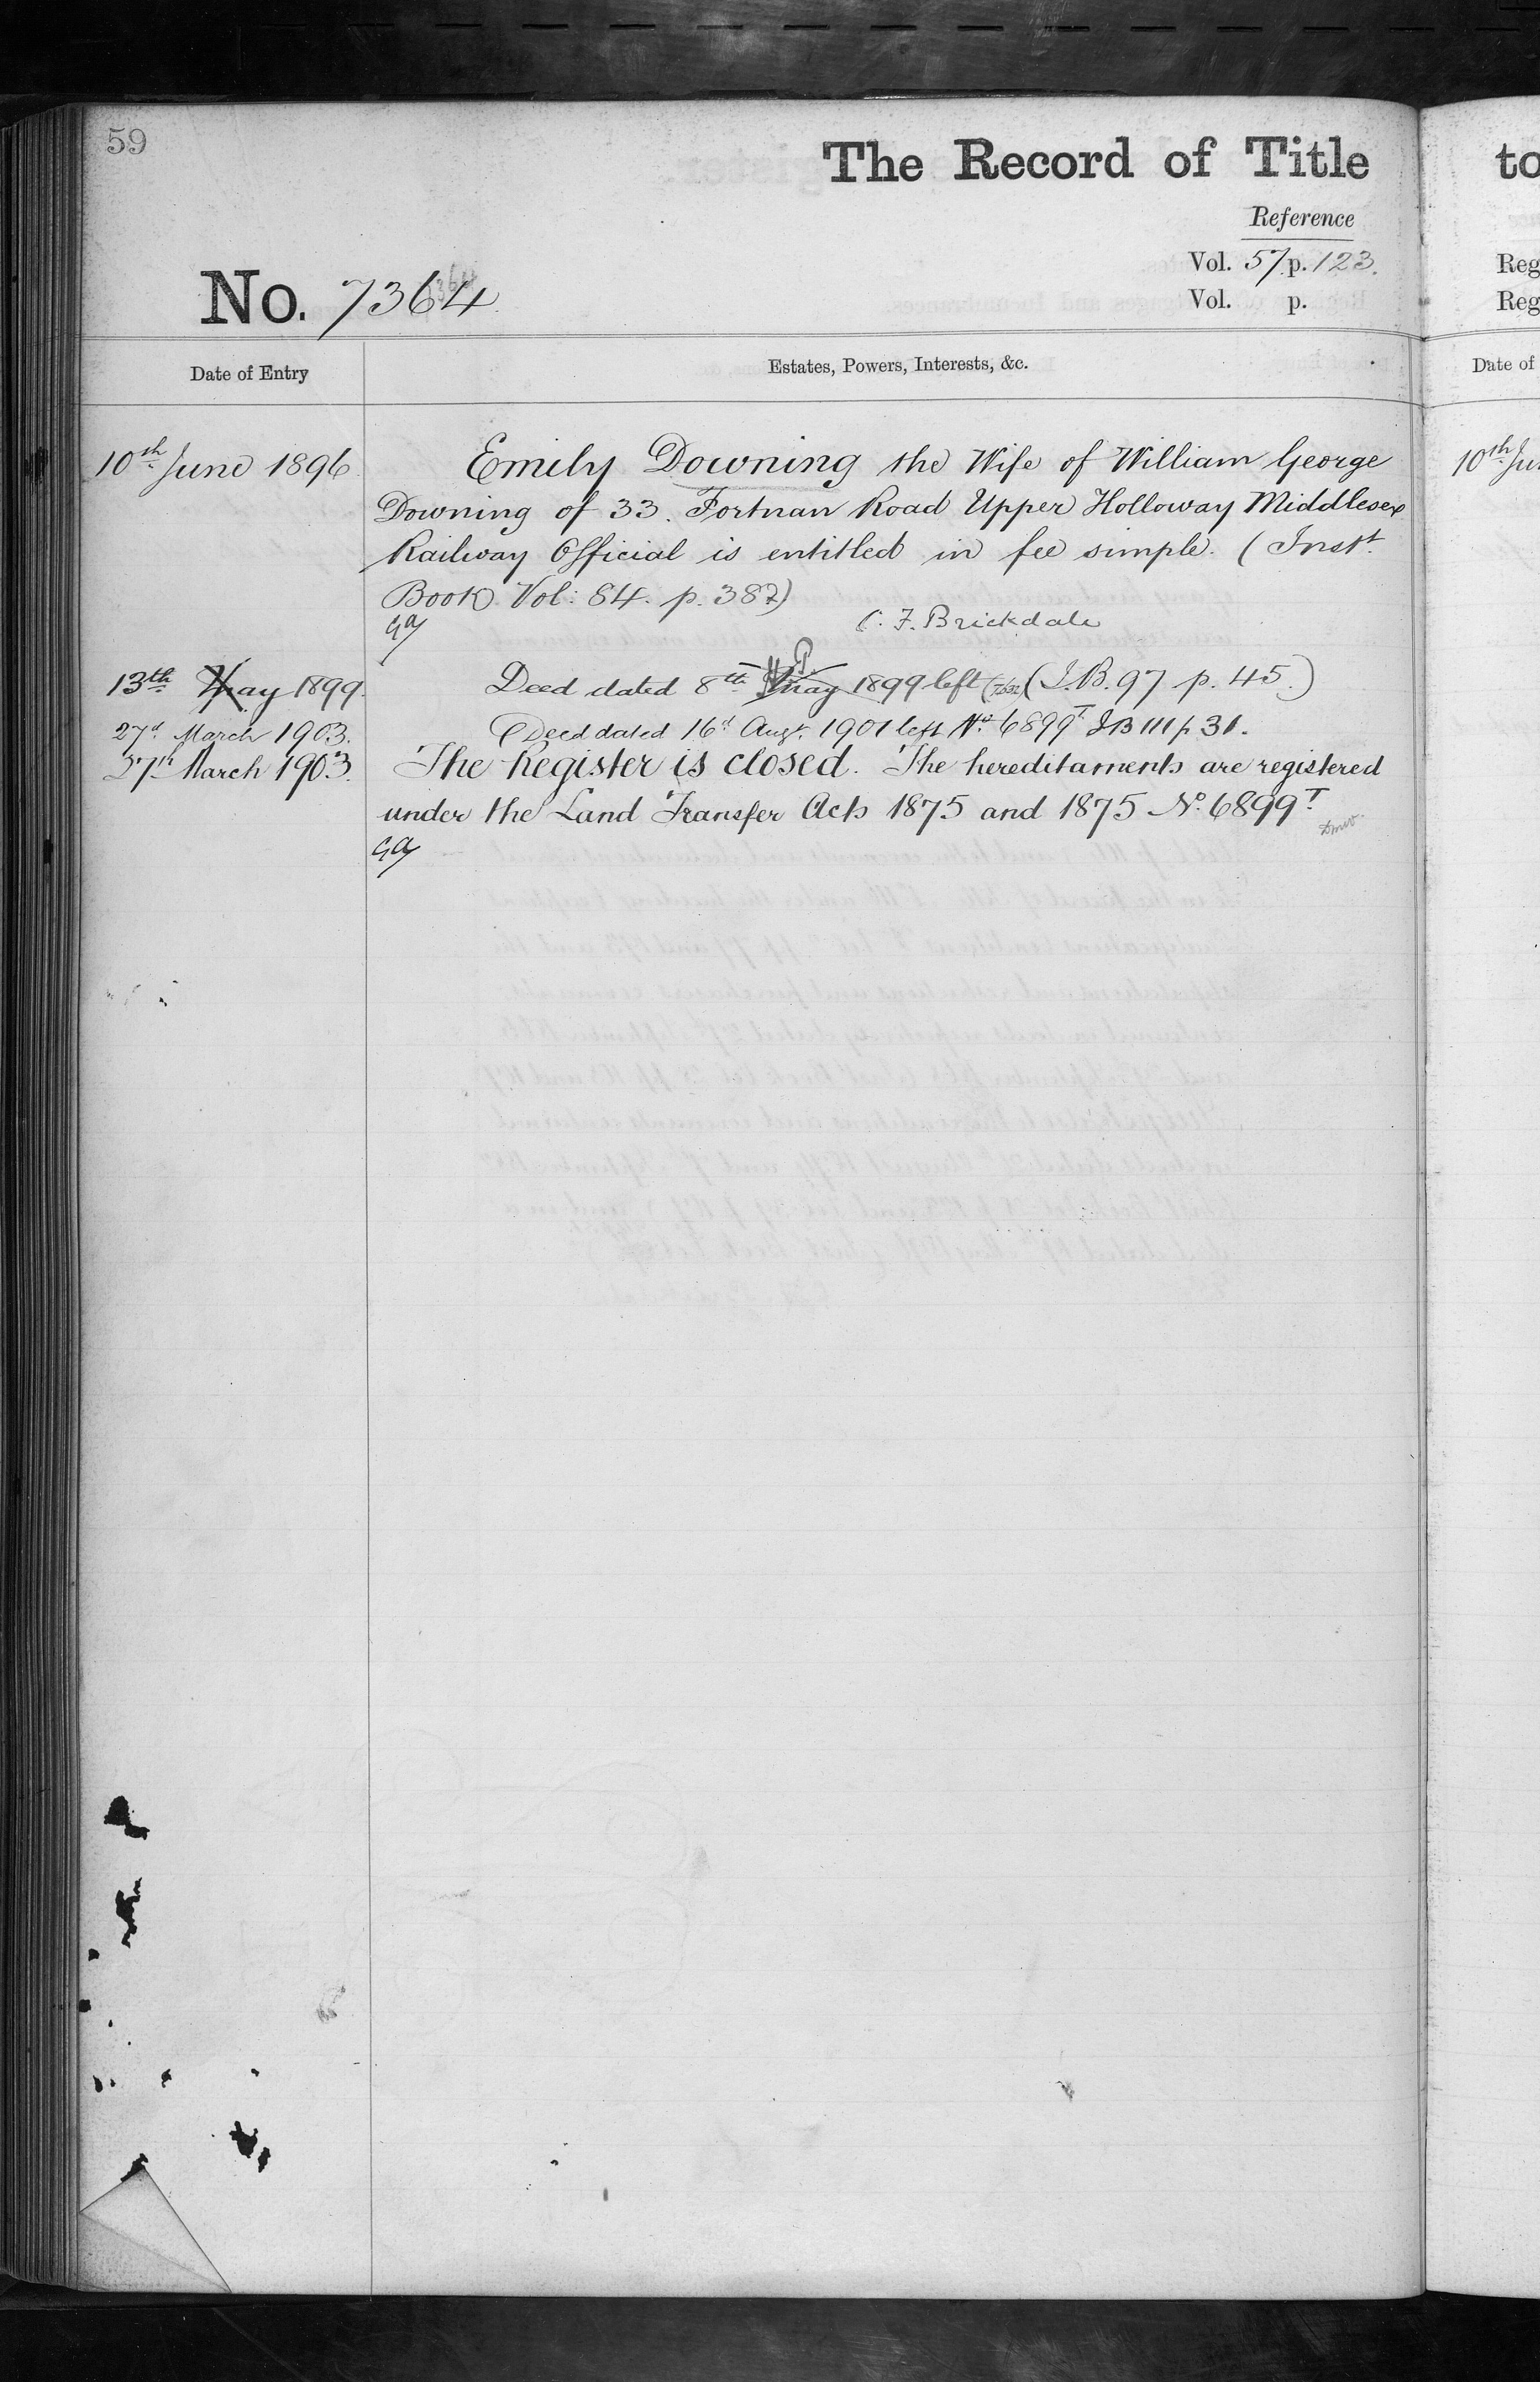 59
The Record of Title
Reference
Vol. 57 p. 123.
No. 7364
Vol. p.
Date of Entry
Estates, Powers, Interests, &c.
10th June 1896
Emily Downing the Wife of William George
Downing of 33. Fortnan Road Upper Holloway Middlesex
Railway Official is entitled in fee simple. (Inst.
Book Vol: 84. p. 387)
C. F. Brickdale
13th May 1899.
Deed dated 8th May 1899 left (I.B. 97 p. 45.)
27th March 1903.
Deed dated 16th Augt. 1901 left No. 6899T IB 111 p 31.
27th March 1903.
The Register is closed. The hereditaments are registered
under the Land Transfer Acts 1875 and 1875 No. 6899T.
to
Reg
Reg
Date of
10th Ju